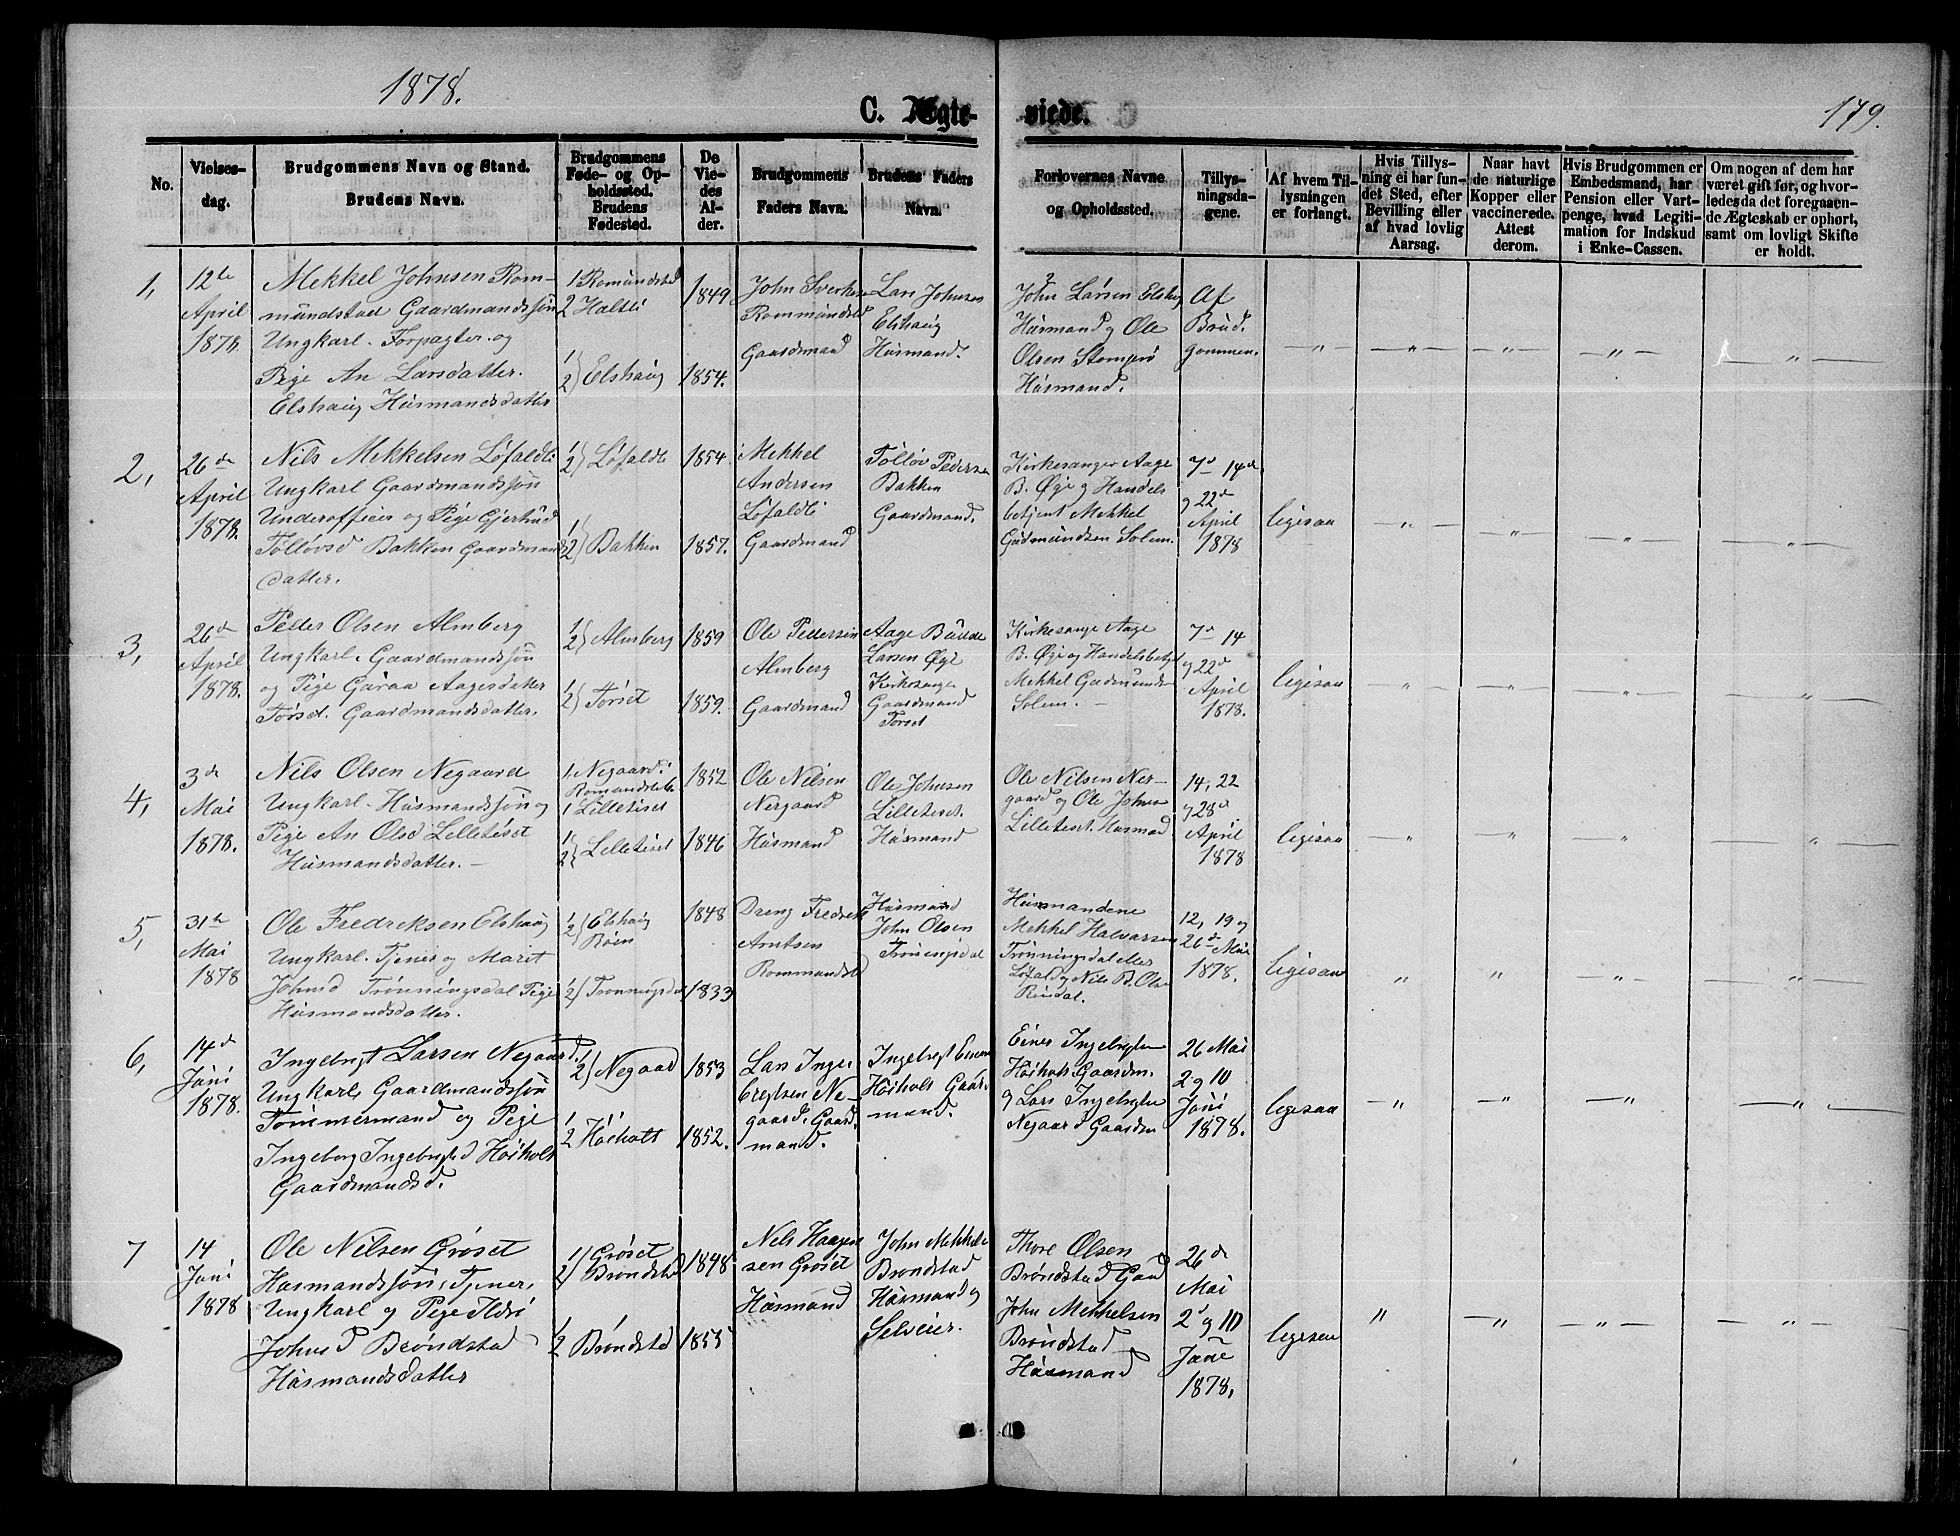 1878.
C. Ægteviede.
179.
No.
Vielses-
dag.
Brudgommens Navn og Stand.
Brudens Navn.
Brudgommens
Føde- og Op-
holdssted.
Brudens
Fødested.
De
Vie-
des
Al-
der.
Brudgommens
Faders Navn.
Brudens Faders
Navn.
Forlovernes Navne
og Opholdssted.
Tillys-
ningsda-
gene.
Af hvem Til-
lysningen
er forlangt.
Hvis Tillys-
ning ei har fun-
det Sted, efter
Bevilling eller
af hvad lovlig
Aarsag.
Naar havt
de naturlige
Kopper eller
vaccinerede.
Attest
derom.
Hvis Brudgommen er
Embedsmand, har
Pension eller Vart-
penge, hvad Legiti-
mation for Indskud
i Enke-Cassen.
Om nogen af dem har
været gift før, og hvor-
ledes da det foregaaen-
de Ægteskab er ophørt,
samt om lovligt Skifte
er holdt.
1,
12te
April
1878.
Mekkel Johnsen Rom-
mundstad Gaardmandssøn
Ungkarl. Forpagter. og
Pige An Larsdatter.
Elshaug Husmandsdatter
1 Romundstad
2 Halsli
1/2) Elshaug
1849
1854.
John Sverkesen
Rommundstad
Gaardmand
Lars Johnsen
Elshaug
Husmand.
John Larsen Elshaug
Husmand og Ole
Olsen Stompro
Husmand.
Af
Brud.
gommen.
2,
26de
April
1878.
Nils Mekkelsen Løfaldli
Ungkarl Gaardmandssøn
Underofficer og Pige Gjertrud
Tolløvsd Bakken Gaardmands
datter.
1/2) Løfaldli
1/2) Bakken
1854.
1857.
Mekkel
Andersen
Løfaldli
Gaardmand
Tølløv Pedersen
Bakken
Gaardmand.
Kirkesanger Aage
B. Øye og Handels
betjent Mekkel
Gudmundsen Solem.
7de 14de
og 22de
April
1878
ligesaa
3,
26de
April
1878.
Peder Olsen Almberg
Ungkarl. Gaardmandssøn
og Pige Guraa Aagesdatter
Torset. Gaardmandsdatter.
1/2) Almberg
1/2) Torset
1859
1859.
Ole Pedersen
Almberg
Gaardmand
Aage Baade
Larsen Øye
Kirkesanger
Gaardmand
Torset
Kirkesange Aage
B. Øye og Handelsbetjt
Mekkel Gudmunds
Solem.
7de 14
og 22de
April
1878.
ligesaa
4,
3de
Mai
1878.
Nils Olsen Negaard
Ungkarl. Husmandssøn og
Pige An Olsd Lilletiset
Husmandsdatter.
1 Negaard.
1 Lilletiset
1/2} Lilletiset
1852
1846
Ole Nilsen
Nergaard
Husmand
Ole Johnsen
Lilletiset.
Husmand
Ole Nilsen Ner-
gaard og Ole Johnsen
Lilletiset. Husmand
14, 22
og 28de
April
1878
ligesaa
5,
31te
Mai
1878
Ole Fredreksen Elshaug
Ungkarl. Tjener og Marit
Johnsd Trønningsdal Pige
Husmandsdatter.
1/2) Elshaug
Bøen
1/2) Trønningsdal
1848
1833
Dreng Fredrek
Arntsen
Rommundstad
Husmand
John Olsen
Trønningsdal
Husmandene
Mekkel Halvarsen
Trønningsdal eller
Løfald og Nils B. Olsen
Rindal.
12, 19 og
26de Mai
1878.
ligesaa
6,
14de
Juni
1878.
Ingebrigt Larsen Negaard.
Ungkarl Gaardmandssøn
Tømmermand og Pige
Ingeborg Ingebrigtsd Høiholt
Gaardmandsd.
1/2) Negaard
1/2 Høiholt
1853
1852.
Lars Inge
bregtsen Ne-
gaard. Gaard.
mand.
Ingebrigt Einersen
Høiholt Gaar.
mand.
Einer Ingebrigtsen
Høiholt Gaardm.
og Lars Ingebrigtsen
Negaard Gaardm
26 Mai
2 og 10
Juni
1878.
ligesaa
7
14
Juni
1878
Ole Nilsen Grøset
Husmandssøn, Tjener,
Ungkarl og Pige Ildri
Johnsd Brøndstad
Husmandsdatter
1) Grøset
2) Brøndstad
1/2 Brøndstad
1848
1855
Nels Haagen
sen Grøset
Husmand
John Mekkelsen
Brøndstad
Husmand og
Selveier.
Thore Olsen
Brøndstad Gaard
John Mekkelsen
Brøndstad
Husmand
26de
Mai
2de og 10
June
1878,
ligesaa